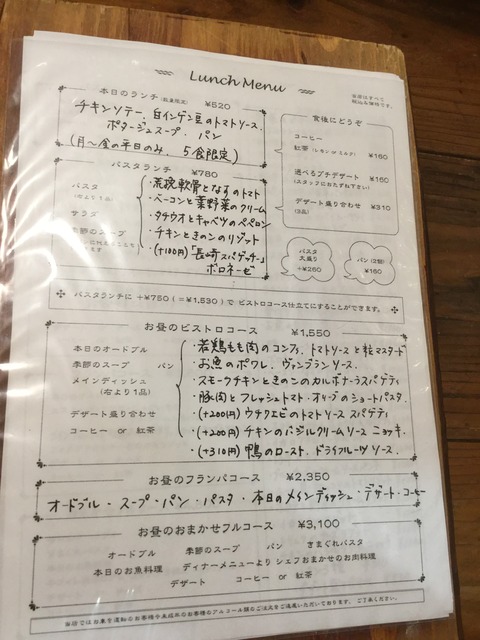 Lunch Menu
当店はすべて
税込み価格です。
本日のランチ (数量限定) ¥520
チキンソテー、白インゲン豆のトマトソース、
ポタージュスープ、パン
(月〜金の平日のみ、5食限定)
食後にどうぞ
コーヒー
紅茶 (レモン or ミルク) ¥160
選べるプチデザート ¥160
(スタッフにおたずね下さい)
デザート盛り合わせ ¥310
(3品)
パスタランチ ¥780
パスタ
(右より1品)
サラダ
季節のスープ
・荒挽軟骨となすのトマト
・ベーコンと葉野菜のクリーム
・タチウオとキャベツのペペロン
・チキンときのこのリゾット
・(+100円)「長崎スパゲッチー」
ボロネーゼ
パスタ
大盛り
+¥260
パン(2個)
¥160
パスタランチに +¥750 (=¥1,530) で ビストロコース仕立てにすることができます。
お昼のビストロコース ¥1,550
本日のオードブル
季節のスープ パン
メインディッシュ
(右より1品)
デザート盛り合わせ
コーヒー or 紅茶
・若鶏もも肉のコンフィ、トマトソースと粒マスタード
・お魚のポワレ、ヴァンブランソース、
・スモークチキンときのこのカルボナーラスパゲティ
・豚肉とフレッシュトマト・オリーブのショートパスタ、
・(+200円) ウチワエビのトマトソース スパゲティ
・(+200円) チキンのバジルクリームソース ニョッキ、
・(+310円) 鴨のロースト、ドライフルーツソース、
お昼のフランパコース ¥2,350
オードブル・スープ・パン・パスタ・本日のメインディッシュ・デザート・コーヒー
お昼のおまかせフルコース ¥3,100
オードブル 季節のスープ パン きまぐれパスタ
本日のお魚料理 ディナーメニューより シェフおまかせのお肉料理
デザート コーヒー or 紅茶
当店ではお車を運転のお客様や未成年のお客様のアルコール類のご注文をご遠慮いただいております。ご了承ください。